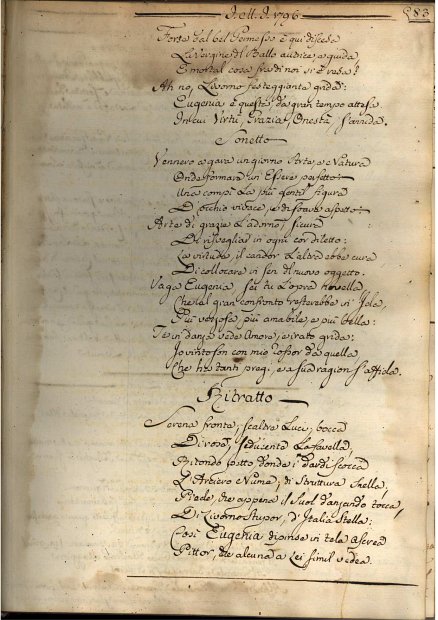 1796
83
Forse dal bel Permesso è qui discesa
La Vergine del Ballo
E mortal cosa fra di noi si è resa?
Ah no, Livorno festeggiante grida:
Eugenia è questa, da gran tempo attesa
In cui Virtù, Grazia, Onestà, s'annida.
Sonetto
Vennero a gara un giorno Arte, e Natura
Onde formare un' Essere perfetto:
Una compì la più gentil figura
D'occhio vivace, e di soave aspetto:
Arte di grazie l'adornò, sicura
Di risvegliar in ogni cor diletto:
La virtude, il candor l'altra ebbe cura
Di collocare in sen di nuovo oggetto.
Vaga Eugenia sei tu l'opra novella
Che al gran confronto resterebbe
Più vezzosa, più amabile, e più bella:
Te in danza vede Amore, e irato grida:
Io vinto son con mio rossor da quella
Che hà tanti pregj, e a sua ragion s'affida.
Ritratto
Serena fronte, scaltre Luci, bocca
Di rosa, seducente la favella,
Ritondo petto d'onde i dardi scocca
L'Arciero Nume; di struttura snella,
Piede, che appena il suol danzando tocca,
Di Livorno stupor, d'Italia Stella:
Così Eugenia dipinse in tela ascrea
Pittor, che alcuna a Lei simil vedea.